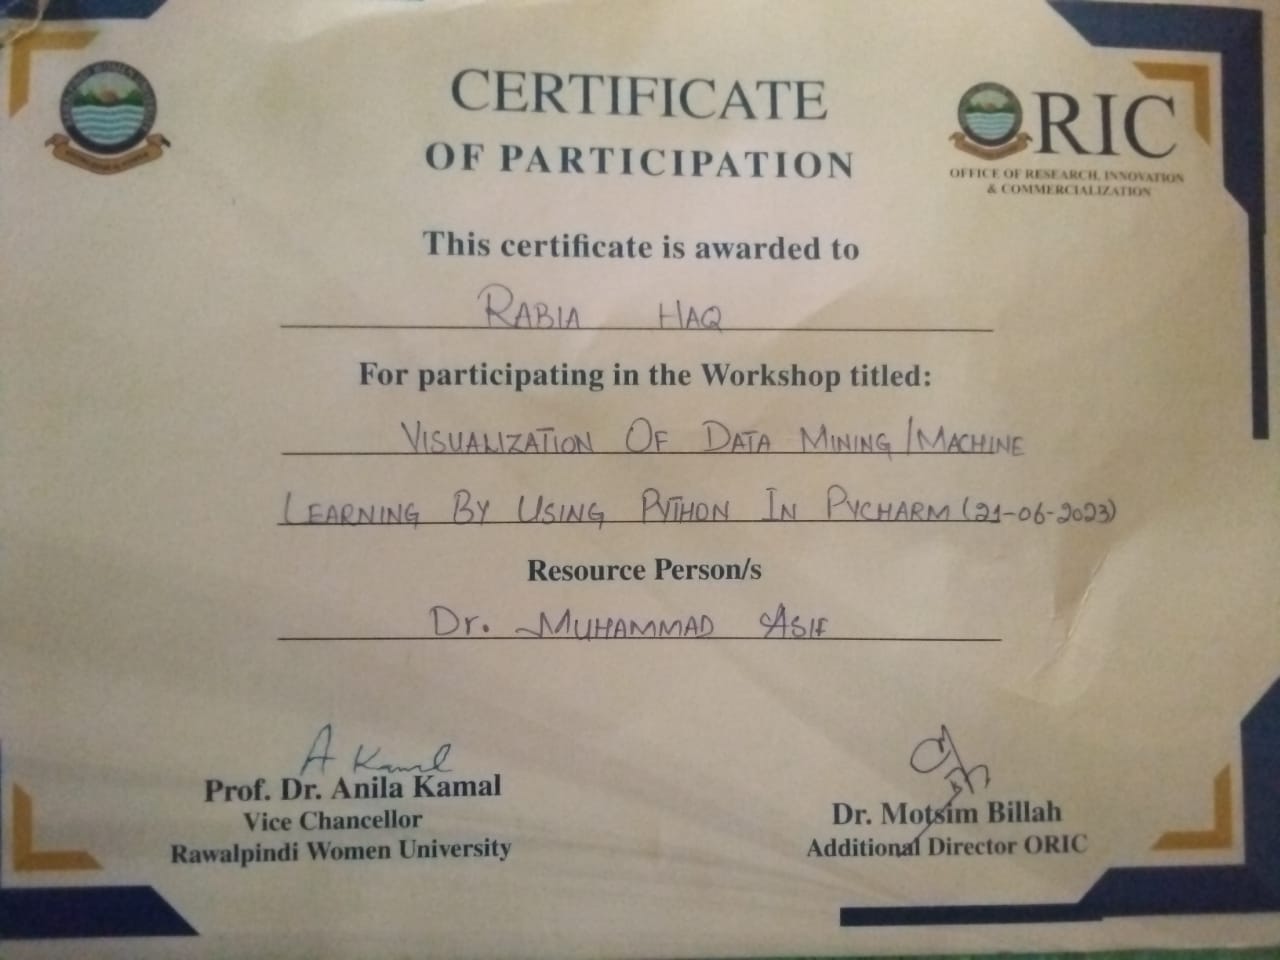 CERTIFICATE
OF PARTICIPATION
ORIC
OFFICE OF RESEARCH, INNOVATION
& COMMERCIALIZATION
This certificate is awarded to
RABIA HAQ
For participating in the Workshop titled:
VISUALIZATION OF DATA MINING/MACHINE
LEARNING BY USING PYTHON IN PYCHARM (21-06-2023)
Resource Person/s
Dr. MUHAMMAD ASIF
A Kamal
Prof. Dr. Anila Kamal
Vice Chancellor
Rawalpindi Women University
Dr. Motsim Billah
Additional Director ORIC